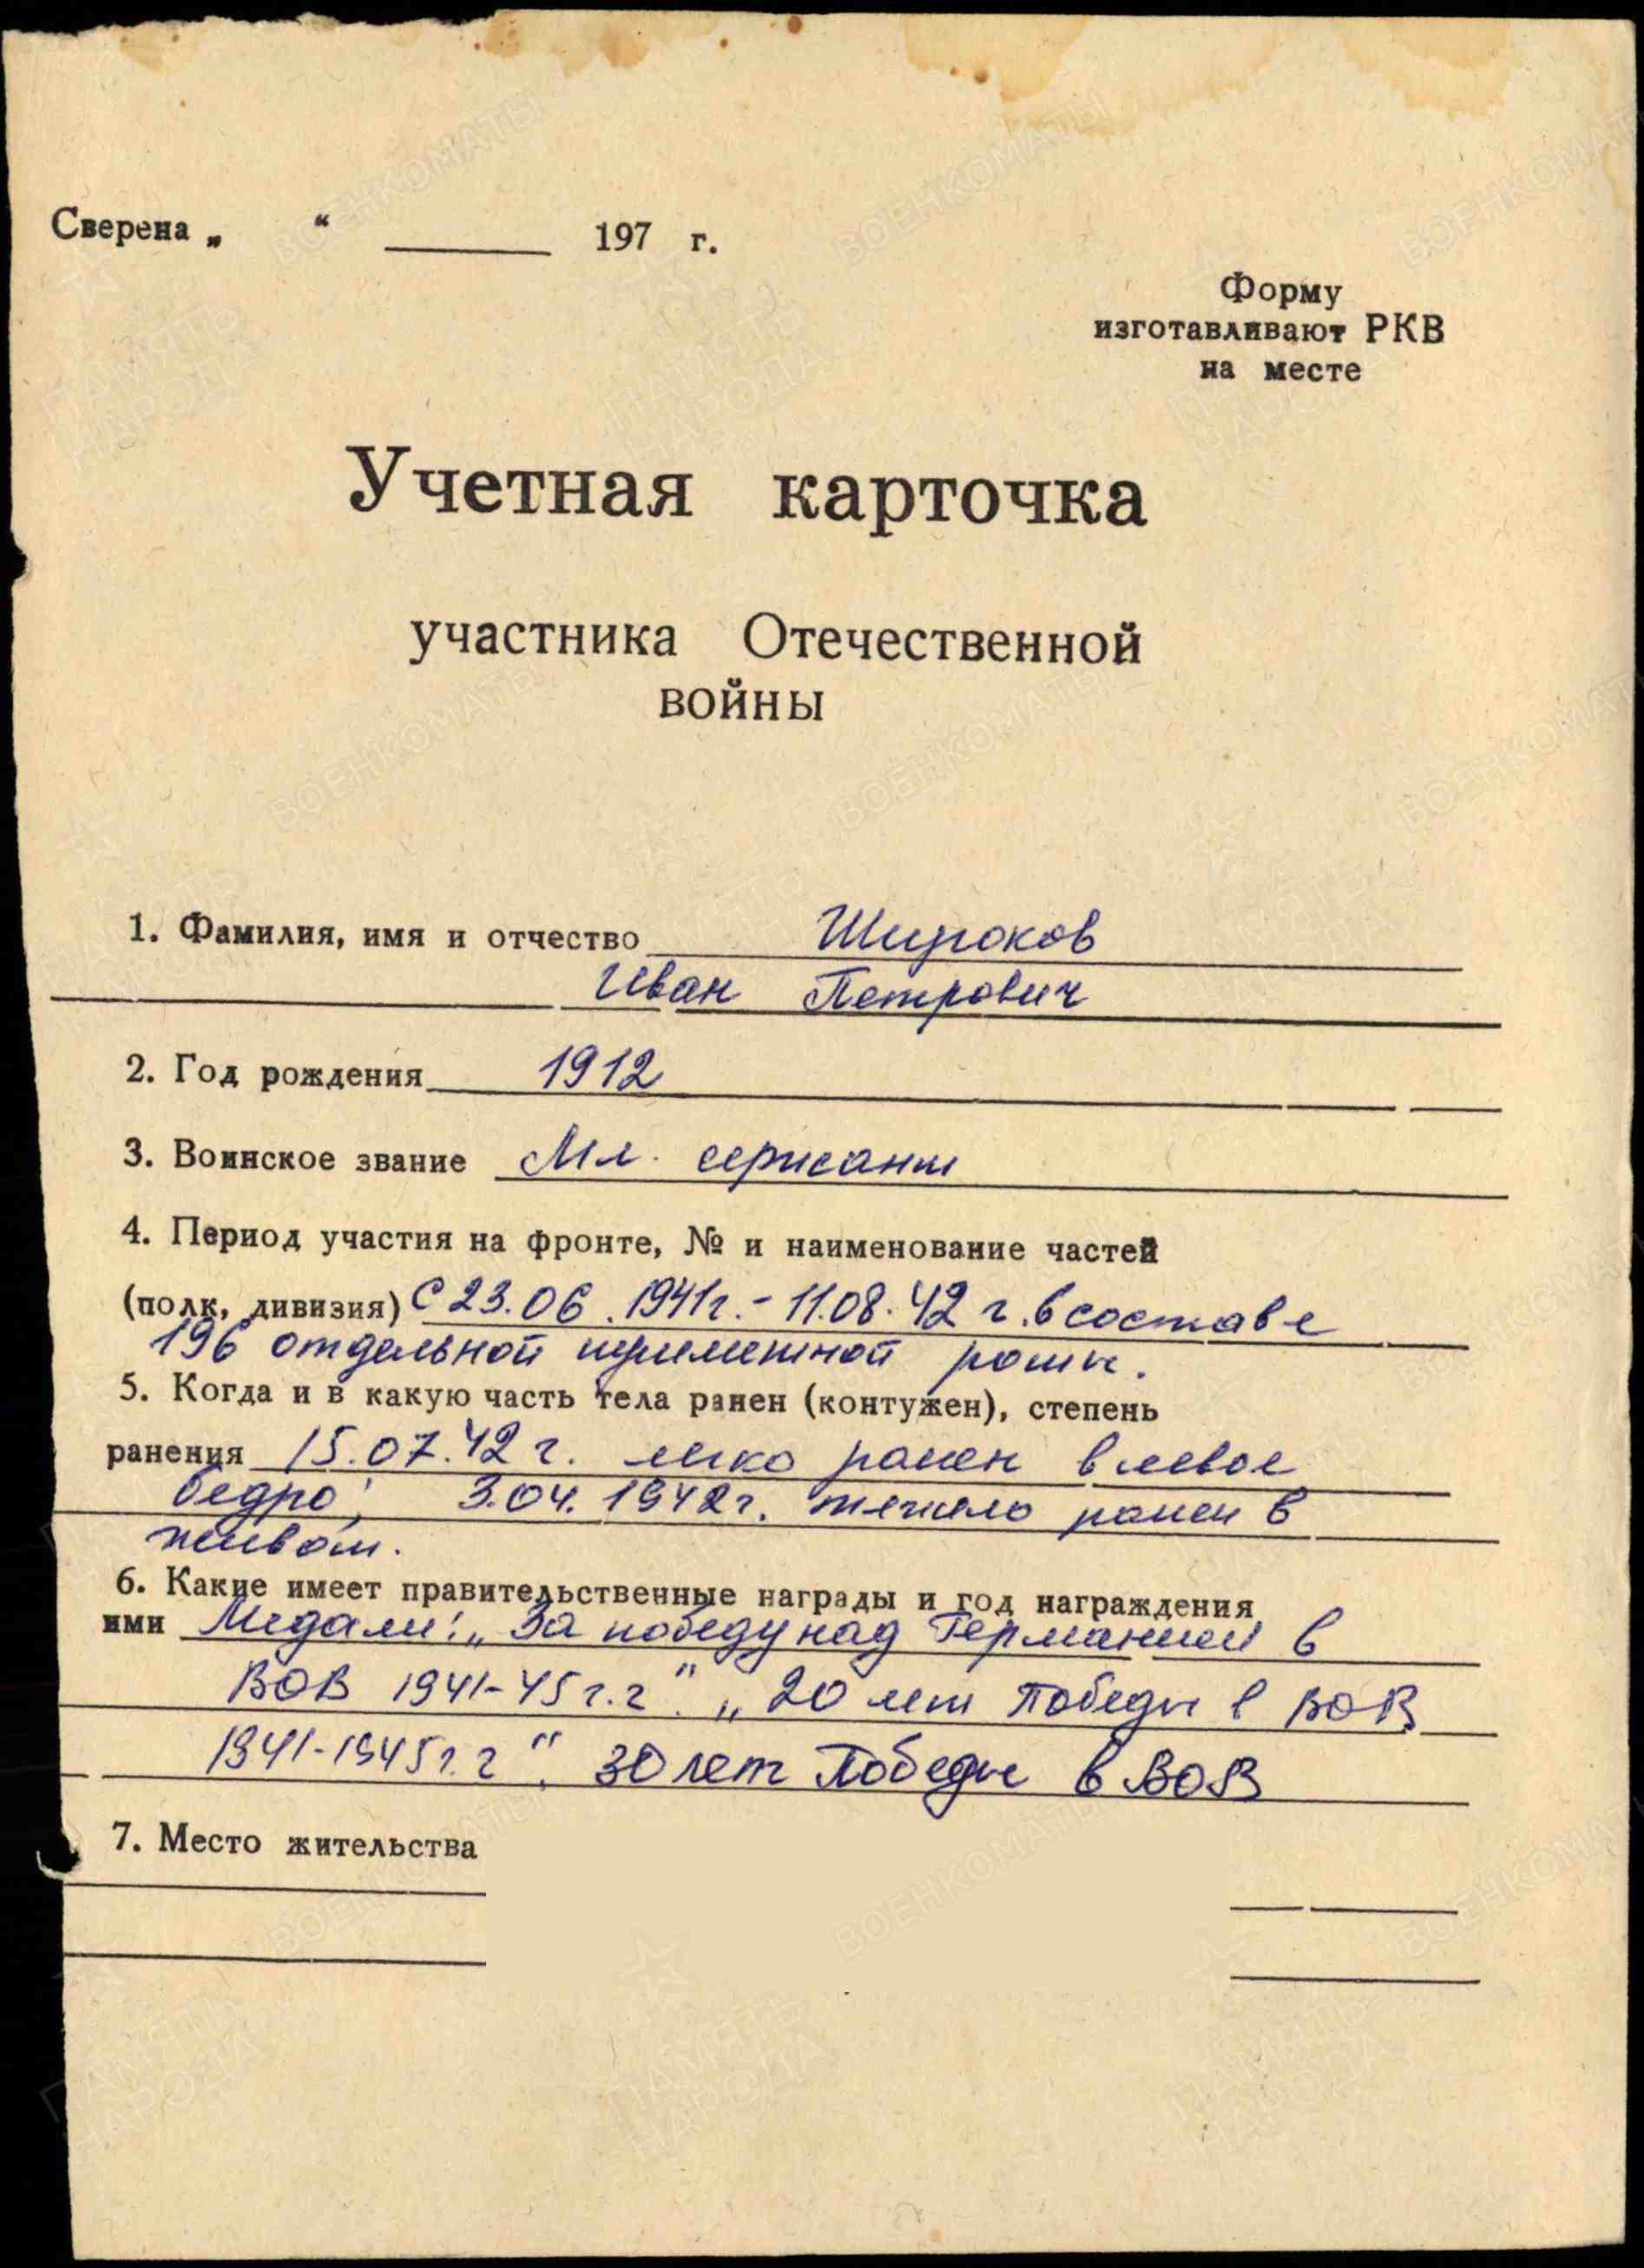 Сверена „ “ 197 г.
Форму
изготавливают РКВ
на месте
Учетная карточка
участника Отечественной
войны
1. Фамилия, имя и отчество Широков
Иван Петрович
2. Год рождения 1912
3. Воинское звание Мл. сержант
4. Период участия на фронте, № и наименование частей
(полк, дивизия) С 23.06.1941г. - 11.08.42 г. в составе
196 отдельной роты.
5. Когда и в какую часть тела ранен (контужен), степень
ранения 15.07.42 г. легко ранен в левое
бедро; 3.04.1942г. тяжело ранен в
живот.
6. Какие имеет правительственные награды и год награждения
ими Медали: „За победу над Германией в
ВОВ 1941-45 г.г". „20 лет Победы в ВОВ
1941-1945 г.г". 30 лет Победы в ВОВ
7. Место жительства
ВОЕНКОМАТЫ
ПАМЯТЬ
НАРОДА